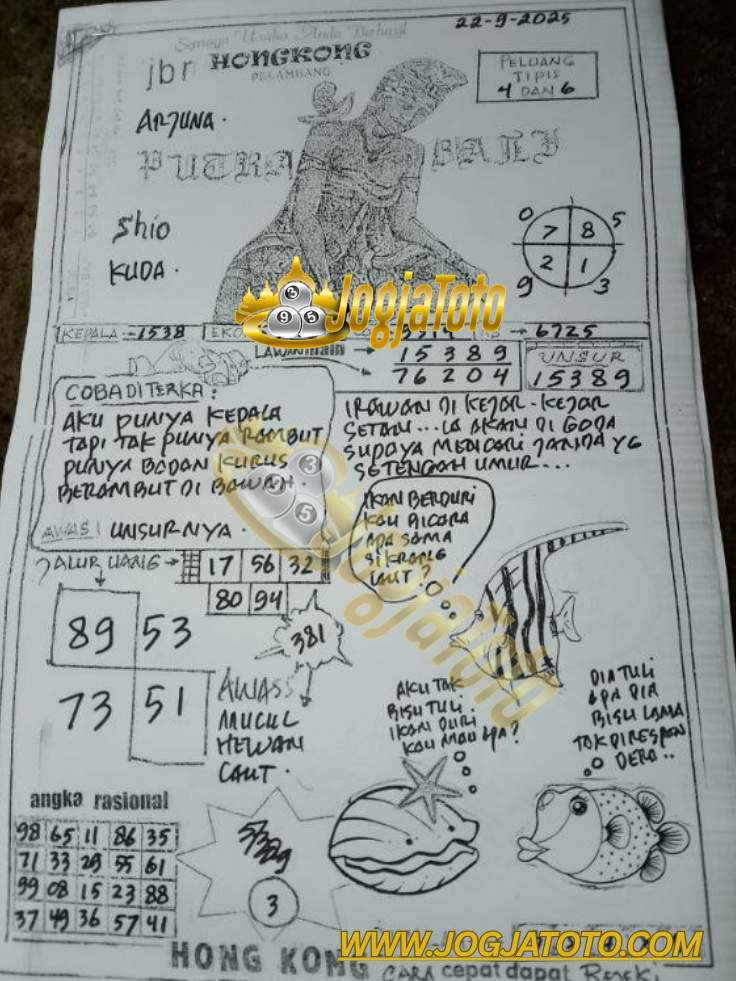 Semoga Usaha Anda Berhasil
22-9-2025
jbr HONGKONG
PELAMBANG
PELUANG
TIPIS
4 DAN 6
ARJUNA.
PUTRA BALI
Shio
KUDA.
0 5
7 8
2 1
9 3
JogjaToto
3 9 5
KEPALA:-1538
EKO
6725
LAWAN main
15389
76204
UNSUR
15389
COBA DI TERKA:
AKU PUNYA KEPALA
TAPI TAK PUNYA RAMBUT
PUNYA BADAN KURUS
BERAMBUT DI BAWAH.
AWAS! UNSURNYA.
IRAWAN DI KEJAR-KEJAR
SETAN...IA AKAN DI GODA
SUPAYA MENCARI JANDA YG
SETENGAH UMUR...
IKAN BERDURI
KAU BICARA
APA SAMA
SI KRANG
LAUT?
JALUR UANG
17 56 32
80 94
89 53
73 51
381
AWASS
MUCUL
HEWAN
LAUT.
AKU TAK
BISU TULI
IKAN DURI
KAU MAU APA?
DIA TULI
APA DIA
BISU LAMA
TAK DIRESPON
DERO..
angka rasional
98 65 11 86 35
71 33 29 55 61
99 08 15 23 88
37 49 36 57 41
3
HONG KONG
WWW.JOGJATOTO.COM
CARA cepat dapat Rezeki